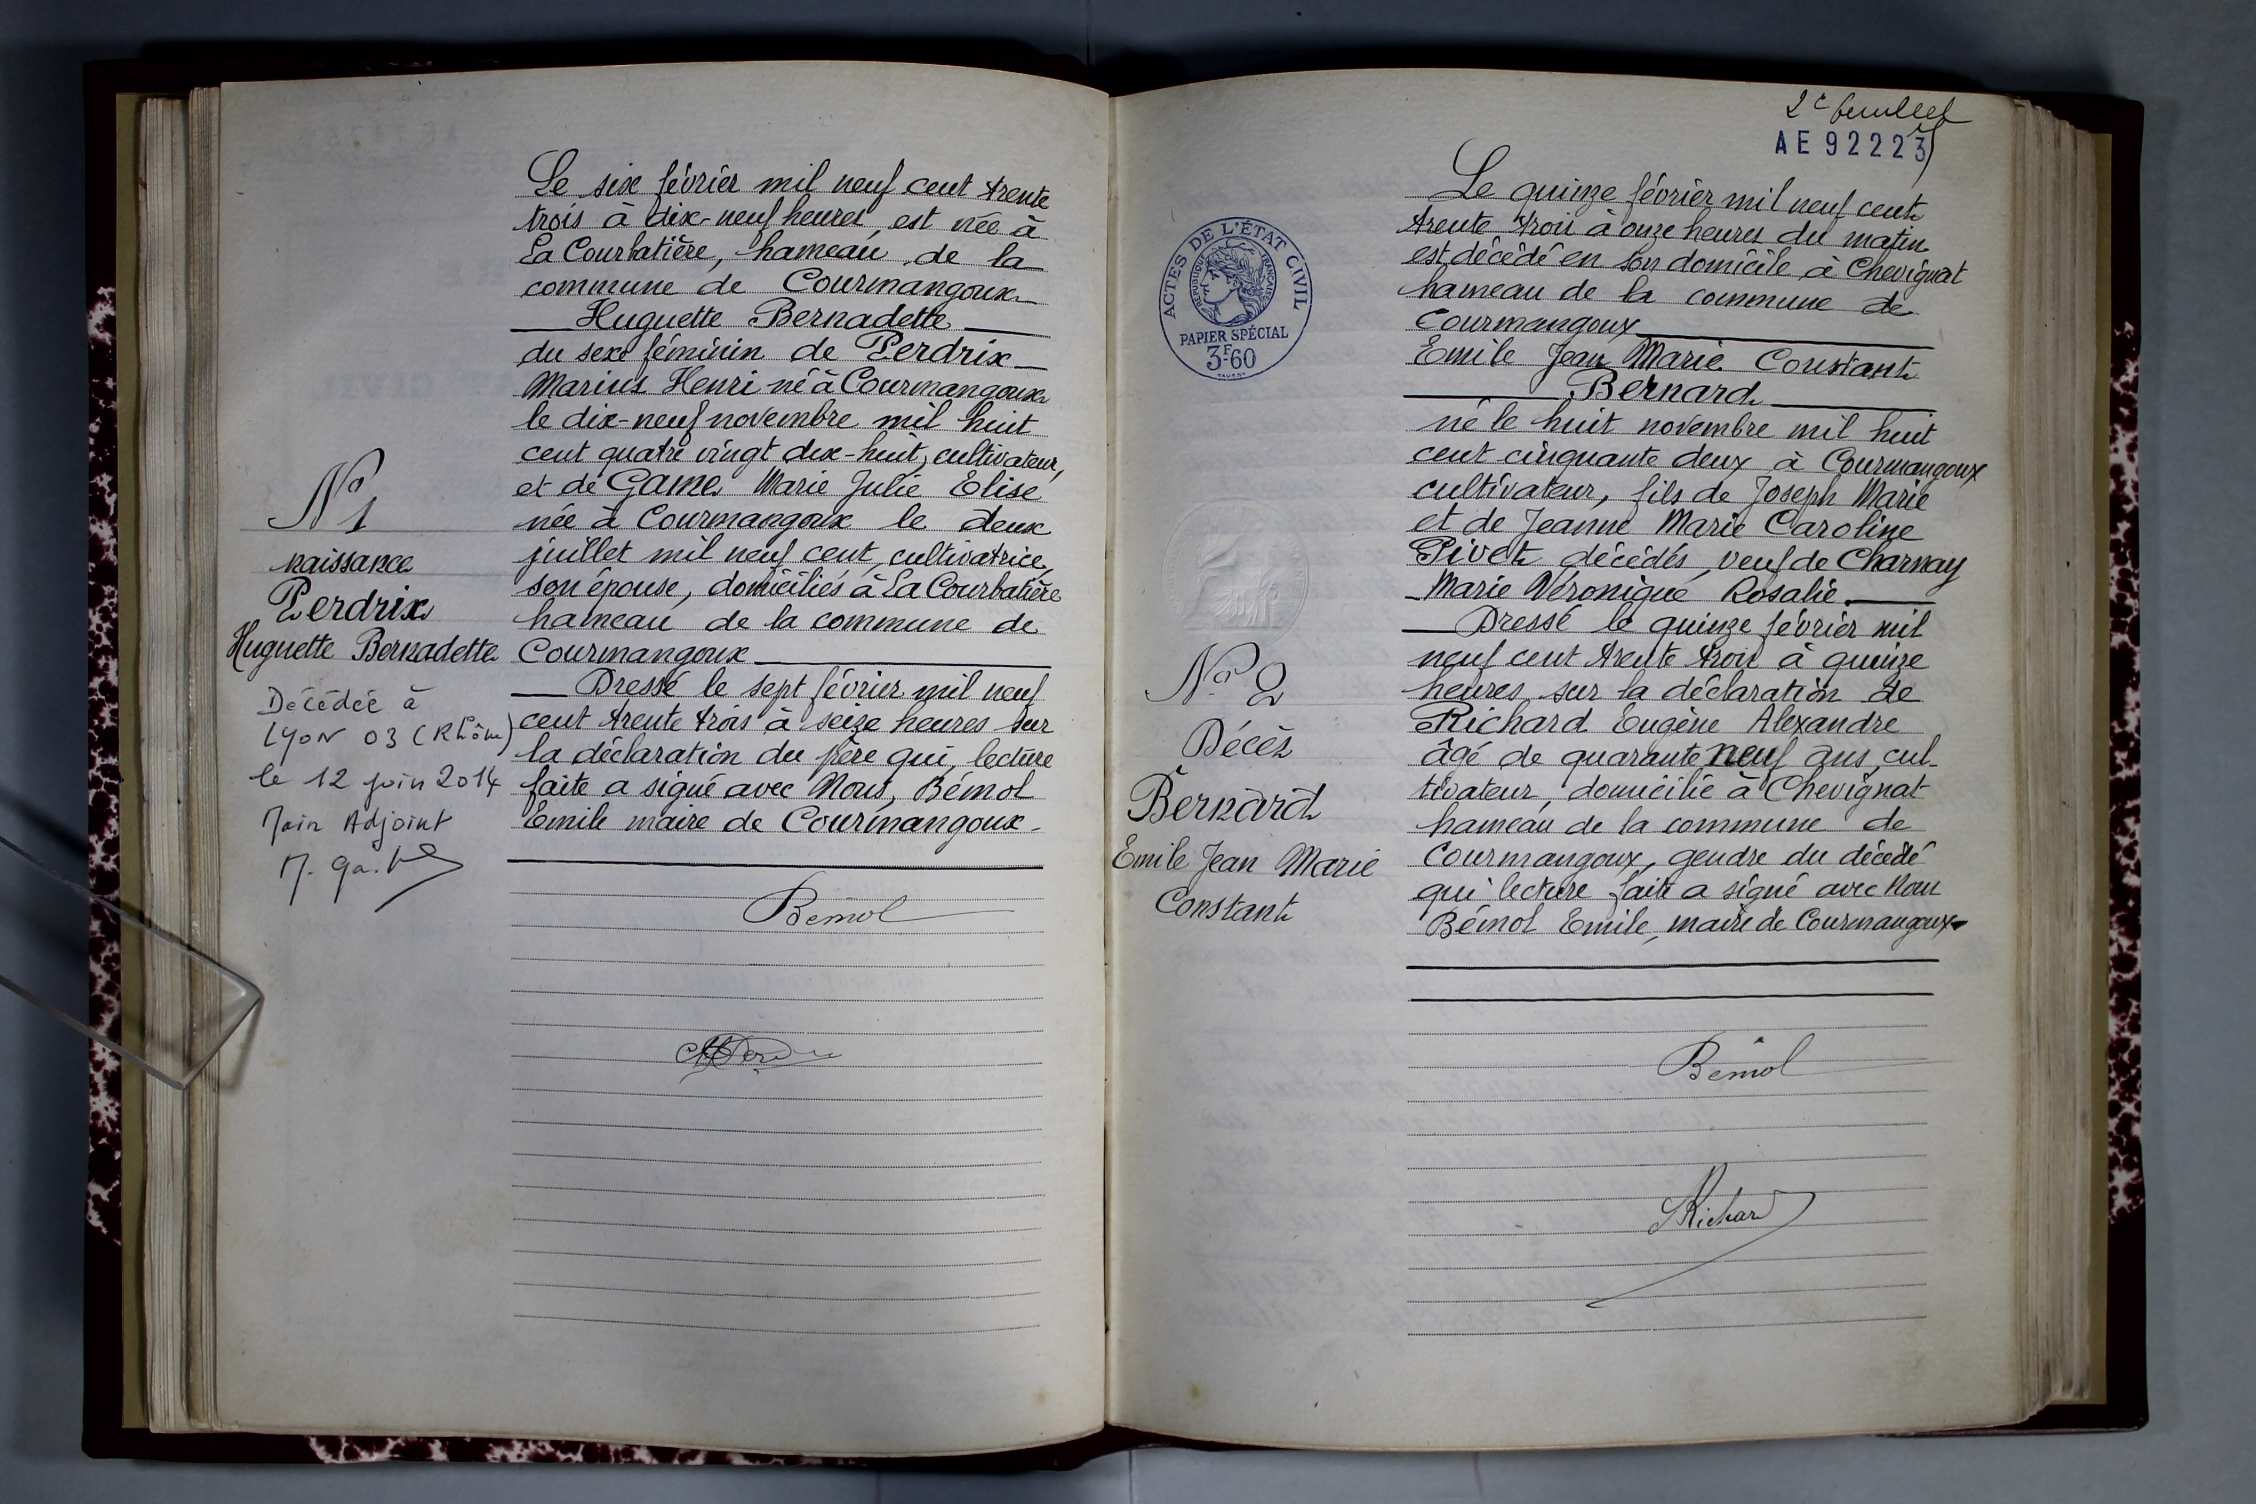 Le six février mil neuf cent trente
trois à dix-neuf heures, est née à
La Courbatière, hameau de la
commune de Courmangoux
Huguette Bernadette
du sexe féminin de Perdrix
Marius Henri né à Courmangoux
le dix-neuf novembre mil huit
cent quatre vingt dix-huit, cultivateur,
et de Game Marie Julie Elise
née à Courmangoux le deux
juillet mil neuf cent, cultivatrice,
son épouse, domiciliés à La Courbatière
hameau de la commune de
Courmangoux
Dressé le sept février mil neuf
cent trente trois à seize heures sur
la déclaration du père qui, lecture
faite a signé avec Nous, Bémol
Emile maire de Courmangoux.
Bémol
No 1
naissance
Perdrix
Huguette Bernadette
Décédée à
LYON 03 (Rhône)
le 12 juin 2014
Adjoint
2e feuillet
AE 92223
ACTES DE L'ÉTAT CIVIL
RÉPUBLIQUE FRANÇAISE
PAPIER SPÉCIAL
3F.60
No 2
Décès
Bernard
Emile Jean Marie
Constant
Le quinze février mil neuf cent
trente trois à onze heures du matin
est décédé en son domicile à Chevignat
hameau de la commune de
Courmangoux
Emile Jean Marie Constant
Bernard
né le huit novembre mil huit
cent cinquante deux à Courmangoux
cultivateur, fils de Joseph Marie
et de Jeanne Marie Caroline
Pivet décédés, veuf de Charnay
Marie Véronique Rosalie
Dressé le quinze février mil
neuf cent trente trois à quinze
heures sur la déclaration de
Richard Eugène Alexandre
âgé de quarante neuf ans, cul-
tivateur, domicilié à Chevignat
hameau de la commune de
Courmangoux, gendre du décédé
qui lecture faite a signé avec Nous
Bémol Emile, maire de Courmangoux
Bémol
Richard